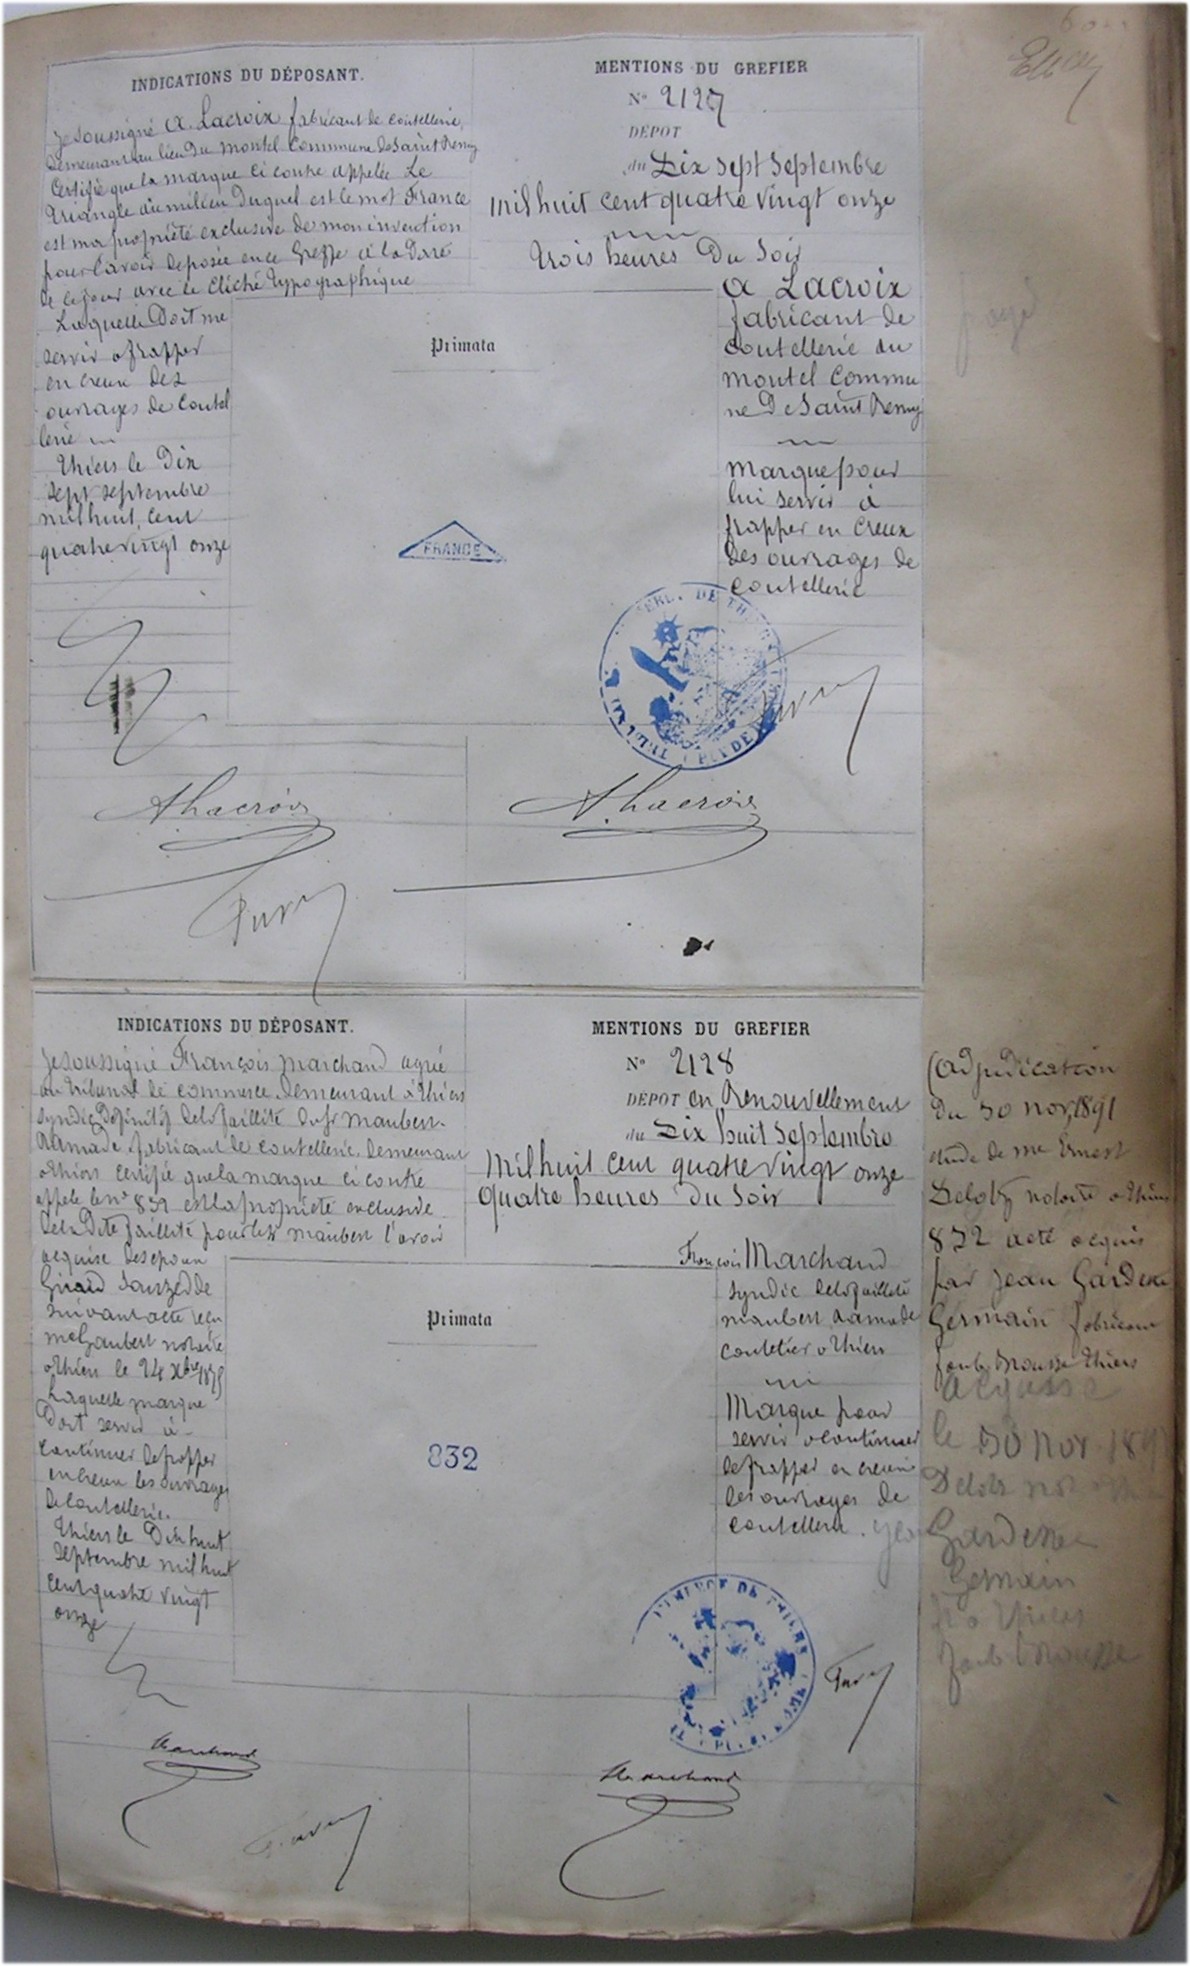 INDICATIONS DU DÉPOSANT.
Je soussigné A. Lacroix fabricant de coutellerie,
demeurant au lieu du montel Commune de Saint Remy
Certifie que la marque ci contre appelée Le
triangle au milieu duquel est le mot France
est ma propriété exclusive de mon invention
pour l'avoir deposée en ce Greffe à la Date
de ce jour avec le Cliché typographique
Laquelle Doit me
servir a frapper
en creux des
ouvrages de Coutel
lerie
Thiers le Dix
sept septembre
mil huit cent
quatre vingt onze
MENTIONS DU GREFIER
N° 2127
DÉPOT
du Dix sept Septembre
mil huit cent quatre vingt onze
trois heures Du Soir
A Lacroix
fabricant de
coutellerie au
montel Commu
ne De Saint Remy
Marque pour
lui servir à
frapper en Creux
des ouvrages de
Coutellerie
Primata
FRANCE
DE TH
PUY DE
A. Lacroix
A. Lacroix
payé
INDICATIONS DU DÉPOSANT.
Je soussigné François Marchand agréé
au tribunal de commerce demeurant à Thiers
Syndic Définitif de la faillite du sr Maubert-
Ramade fabricant de coutellerie demeurant
a Thiers certifie que la marque ci contre
appelée le n° 832 est la propriété exclusive
de la Dite faillite pour le sr Maubert l'avoir
acquise des époux
Girard Sauzedde
suivant acte reçu
me Gaubert notaire
a Thiers le 24 Xbre 1875
Laquelle marque
Doit servir à
continuer de frapper
en Creux les ouvrages
de Coutellerie.
Thiers le Dix huit
Septembre mil huit
cent quatre vingt
onze
MENTIONS DU GREFIER
N° 2128
DÉPOT en Renouvellement
du Dix huit Septembre
Mil huit cent quatre vingt onze
Quatre heures Du Soir
François Marchand
Syndic de la faillite
maubert Ramade
coutelier a Thiers
Marque pour
servir a continuer
de frapper en creux
les ouvrages de
coutellerie.
Primata
832
COMMERCE DE THIERS
Marchand
Marchand
(adjudication
Du 30 nov. 1891
étude de me Ernest
notaire a Thiers
832 acte acquis
par Jean Gardette
Germain fabricant
Thiers
acquise
le 30 Nov 189
Jean Gardette
Germain